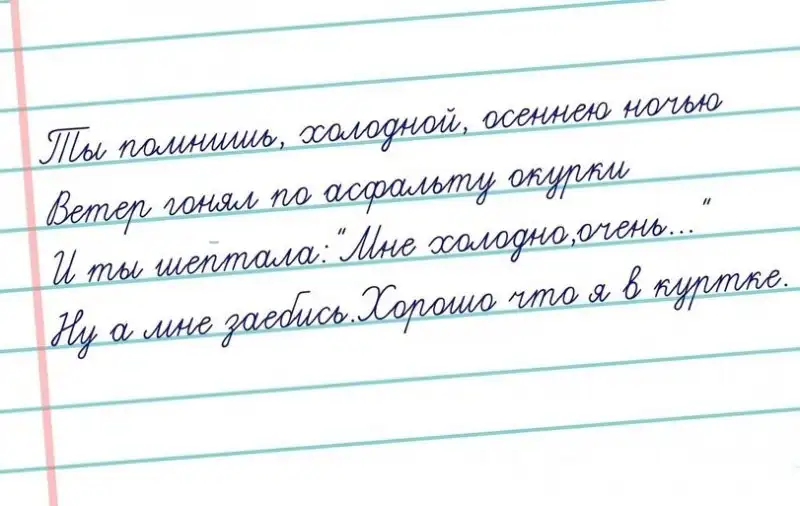 Ты помнишь, холодной, осеннею ночью
Ветер гонял по асфальту окурки
И ты шептала:"Мне холодно,очень..."
Ну а мне заебись.Хорошо что я в куртке.